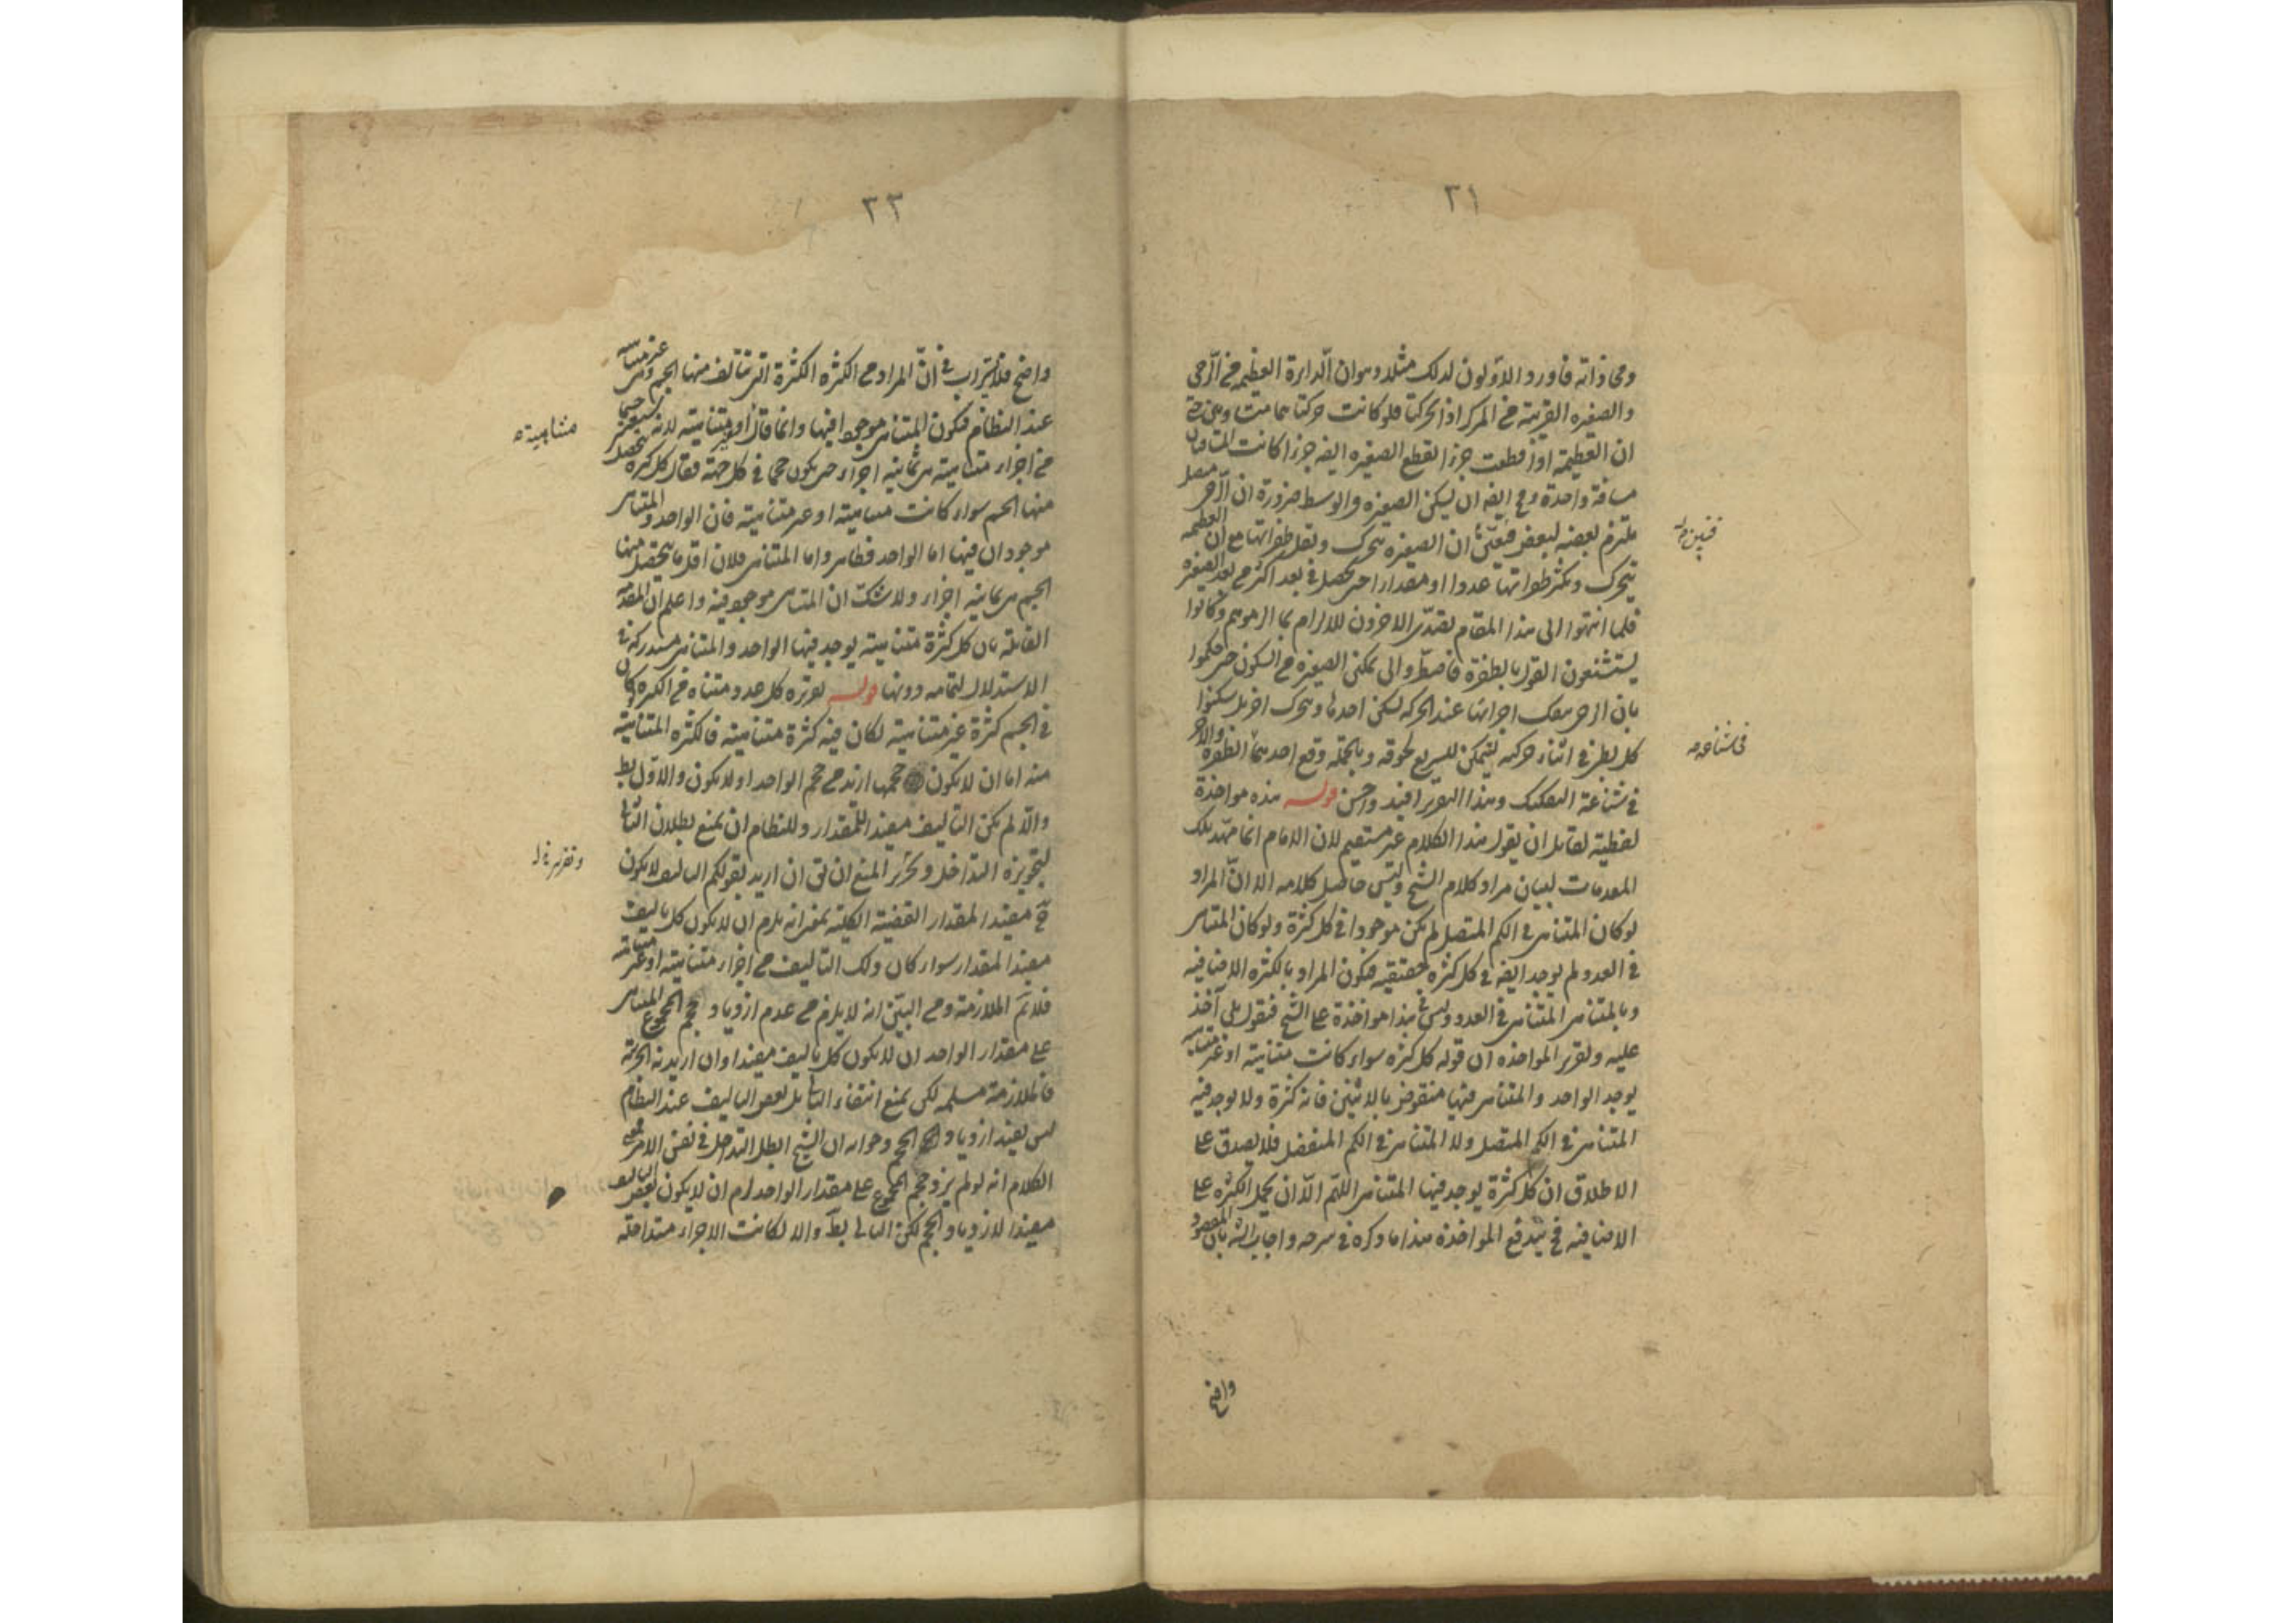 ٢١
ومحاذاته فاورد الاولون لذلك مثلا وهو ان الدايرة العظيمة من الرحى
والصغيرة القريبة من المركز اذا تحركتا فلو كانت حركتاهما
ان العظيمة اذا قطعت جزءا لقطع الصغيرة ايضا جزءا كانت
مسافة واحدة ومح ايضا ان يسكن الصغيرة والوسط ضرورة ان الرحى متصل
ملتزم بعضه لبعض فتعين ان الصغيرة يتحرك وتقل طفراتها مع ان العظيمة
يتحرك ويكثر طفراتها عددا او مقدارا حتى يحصل في بعد اكثر من بعد الصغيرة
فلما انتهوا الى هذا المقام تصدى الاخرون للالزام بما الزموهم وكانوا
يستشنعون القول بالطفرة فاضطروا الى تمكين الصغيرة من السكون حتى حكموا
بان الرحى يتفكك اجزائها عند الحركة ليسكن احدها ويتحرك اخر بل سكنوا
كل بطئ في اثناء حركته ليتمكن السريع لحوقه وبالجملة وقع احدهما في الطفرة والآخر
في شناعة التفكيك وهذا التقرير افيد واحسن قوله هذه مواخذة
لفظية لقائل ان يقول هذا الكلام غير مستقيم لان الامام انما مهد تلك
المقدمات لبيان مراد كلام الشيخ وليس حاصل كلامه الا ان المراد
لو كان المتناهي في الكم المتصل لم يكن موجودا في كل كثرة ولو كان المتناهي
في العدد لم يوجد ايضا في كل كثرة حقيقية فيكون المراد بالكثرة الاضافية
وبالمتناهي المتناهي في العدد وليس في هذا مواخذة على الشيخ فنقول بلى آخذ
عليه وتقرير المواخذة ان قوله كل كثرة سواء كانت متناهية او غير متناهية
يوجد الواحد والمتناهي فيها منقوض بالاثنين فانه كثرة ولا يوجد فيه
المتناهي في الكم المتصل ولا المتناهي في الكم المنفصل فلا يصدق على
الاطلاق ان كل كثرة يوجد فيها المتناهي اللهم الا ان يحمل الكثرة على
الاضافية فح يندفع المواخذة هذا ما ذكره في شرحه واجاب الش بان المقصود
واضح
فتبين
في شناعة
٢٣
واضح فلا يتراب في ان المراد من الكثرة الكثرة التي تتالف منها الجسم وهي غير متناهية
عند النظام فيكون المتناهي موجودا فيها وانما قال او متناهية لانه
من اجزاء متناهية هي ثمانية اجزاء حتى يكون حجما في كل جهة فقال كل كثرة
منها الجسم سواء كانت متناهية او غير متناهية فان الواحد والمتناهي
موجودان فيها اما الواحد فظاهر واما المتناهي فلان اقل ما يتحصل منها
الجسم هي ثمانية اجزاء ولا شك ان المتناهي موجود فيه واعلم ان المقدمة
القائلة بان كل كثرة متناهية يوجد فيها الواحد والمتناهي مستدركة في
الاستدلال لتمامه دونها قوله تقريره كل عدد متناه من الكثرة لو كان
في الجسم كثرة غير متناهية لكان فيه كثرة متناهية فالكثرة المتناهية
منه اما ان لا يكون حجمها ازيد من حجم الواحد او لا يكون والاول بط
والا لم يكن التاليف مفيدا للمقدار وللنظام ان يمنع بطلان التالي
لتجويزه التداخل وتحرير المنع ان يق ان اريد بقولكم التاليف لا يكون
ح مفيدا للمقدار القضية الكلية بمعنى انه يلزم ان لا يكون كل تاليف
مفيدا للمقدار سواء كان ذلك التاليف من اجزاء متناهية او غير متناهية
فلا نم الملازمة ومن البين انه لا يلزم من عدم ازدياد حجم المجموع المتناهي
على مقدار الواحد ان لا يكون كل تاليف مفيدا وان اريد به الجزئية
فالملازمة مسلمة لكن نمنع انتفاء التالي بل بعض التاليف عند النظام
ليس يفيد ازدياد الحجم وجوابه ان الشيخ ابطل التداخل في نفس الامر
الكلام انه لو لم يزد حجم المجموع على مقدار الواحد لزم ان لا يكون بعض التاليف
مفيدا لازدياد الحجم لكن التالي بط والا لكانت الاجزاء متداخلة
متناهية